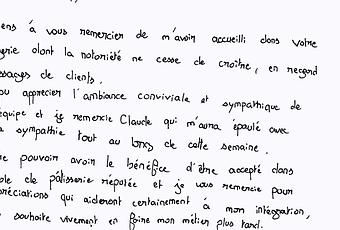 ens à vous remercier de m'avoir accueilli dans votre
gerie dont la notoriété ne cesse de croître, en regard
ssages de clients.
pu apprecier l'ambiance conviviale et sympathique de
équipe et je remercie Claude qui m'aura épaulé avec
a sympathie tout au long de cette semaine.
re pouvoir avoir le bénéfice d'être accepté dans
ole de pâtisserie réputée et je vous remercie pour
préciations qui aideront certainement à mon intégration,
souhaite vivement en faire mon métier plus tard.